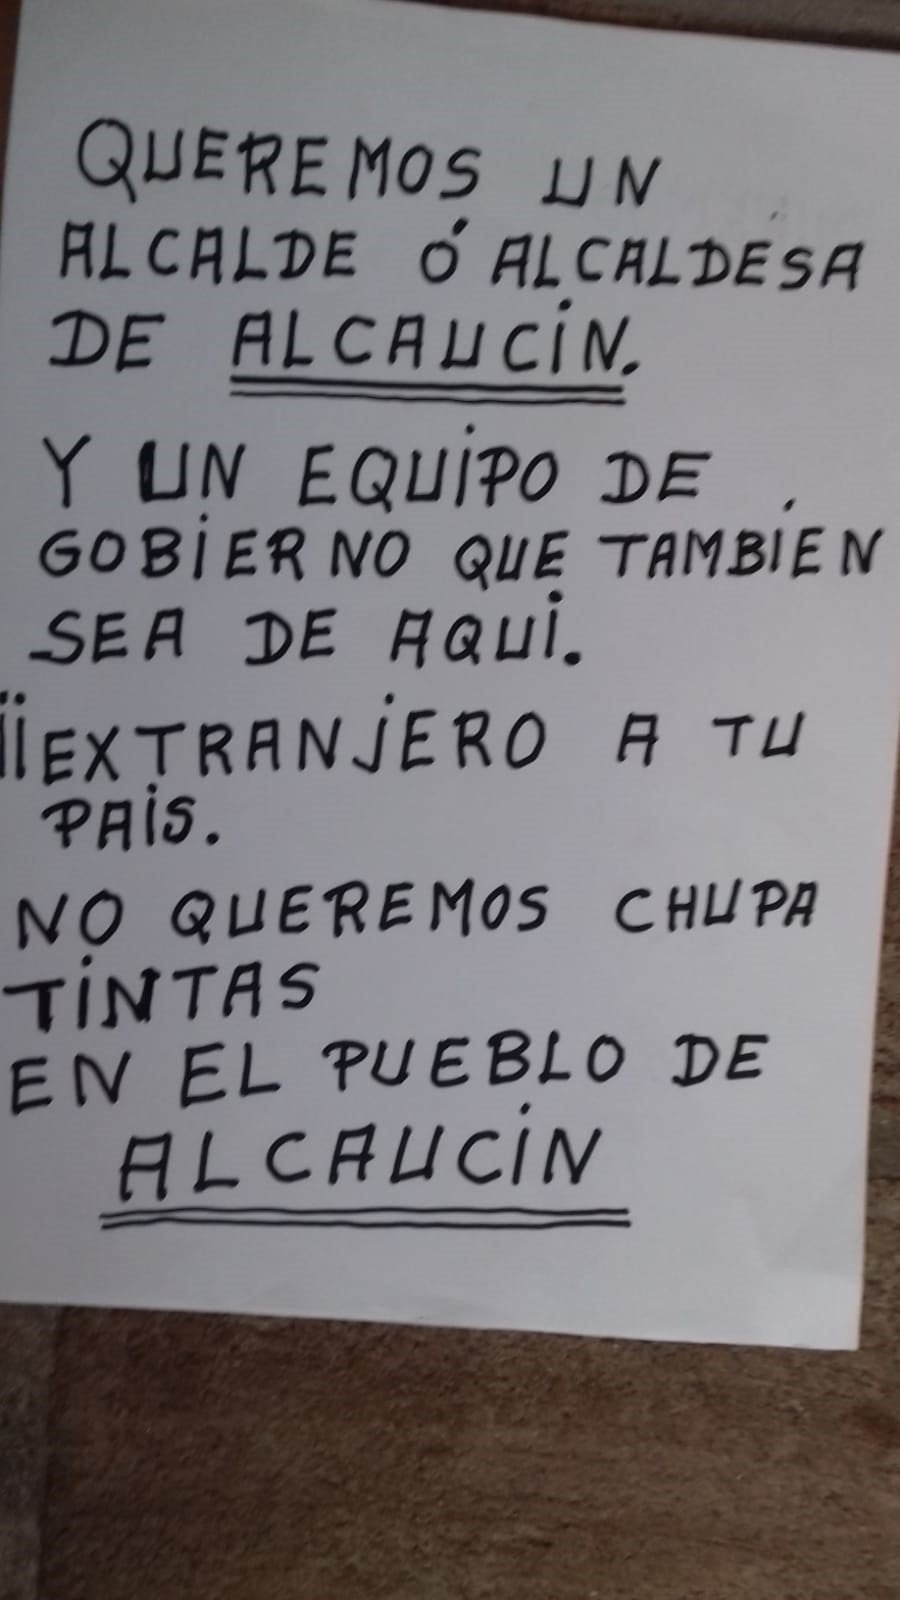 QUEREMOS UN
ALCALDE Ó ALCALDESA
DE ALCAUCiN.
Y UN EQUiPO DE
GOBiERNO QUE TAMBiÉN
SEA DE AQUi.
¡¡EXTRANjERO A TU
PAiS.
NO QUEREMOS CHUPA
TiNTAS
EN EL PUEBLO DE
ALCAUCiN